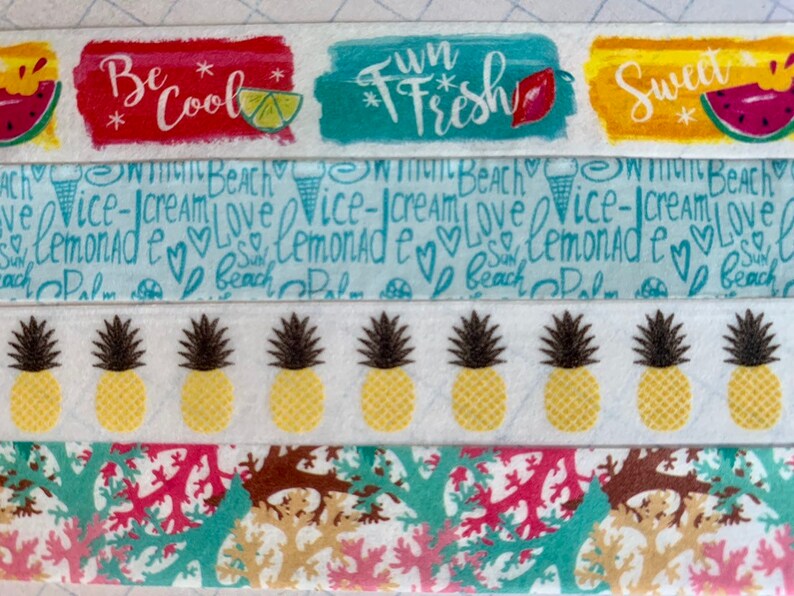 Be
Cool
Fun
Fresh
Sweet
Beach
ice-cream
Love
lemonade
Sun
beach
Beach
ice-cream
Love
lemonade
Sun
beach
Beach
ice-cream
Love
lemonade
Sun
beach